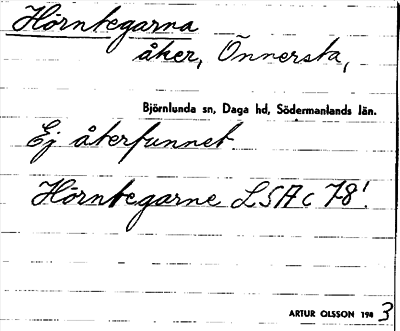 Hörntegarna
åker, Önnersta,
Björnlunda sn, Daga hd, Södermanlands län.
Ej återfunnet
Hörntegarne LSA c 78!
ARTUR OLSSON 194 3